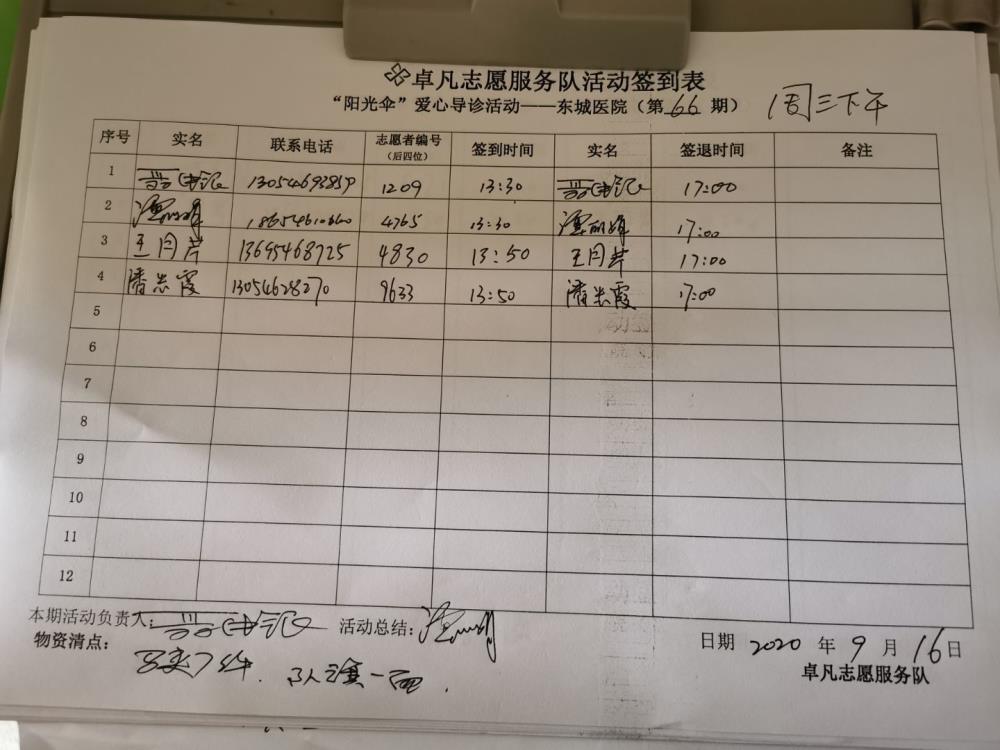 卓凡志愿服务队活动签到表
“阳光伞”爱心导诊活动——东城医院（第66期） 周三下午
序号 实名 联系电话 志愿者编号（后四位） 签到时间 实名 签退时间 备注
1 1209 13:30 17:00
2 4765 13:30 17:00
3 王月芹 13695468725 4830 13:50 王月芹 17:00
4 潘志霞 13054628270 9633 13:50 潘志霞 17:00
5
6
7
8
9
10
11
12
本期活动负责人： 活动总结：
日期 2020 年 9 月 16 日
物资清点：
马夹7件．队旗一面．
卓凡志愿服务队